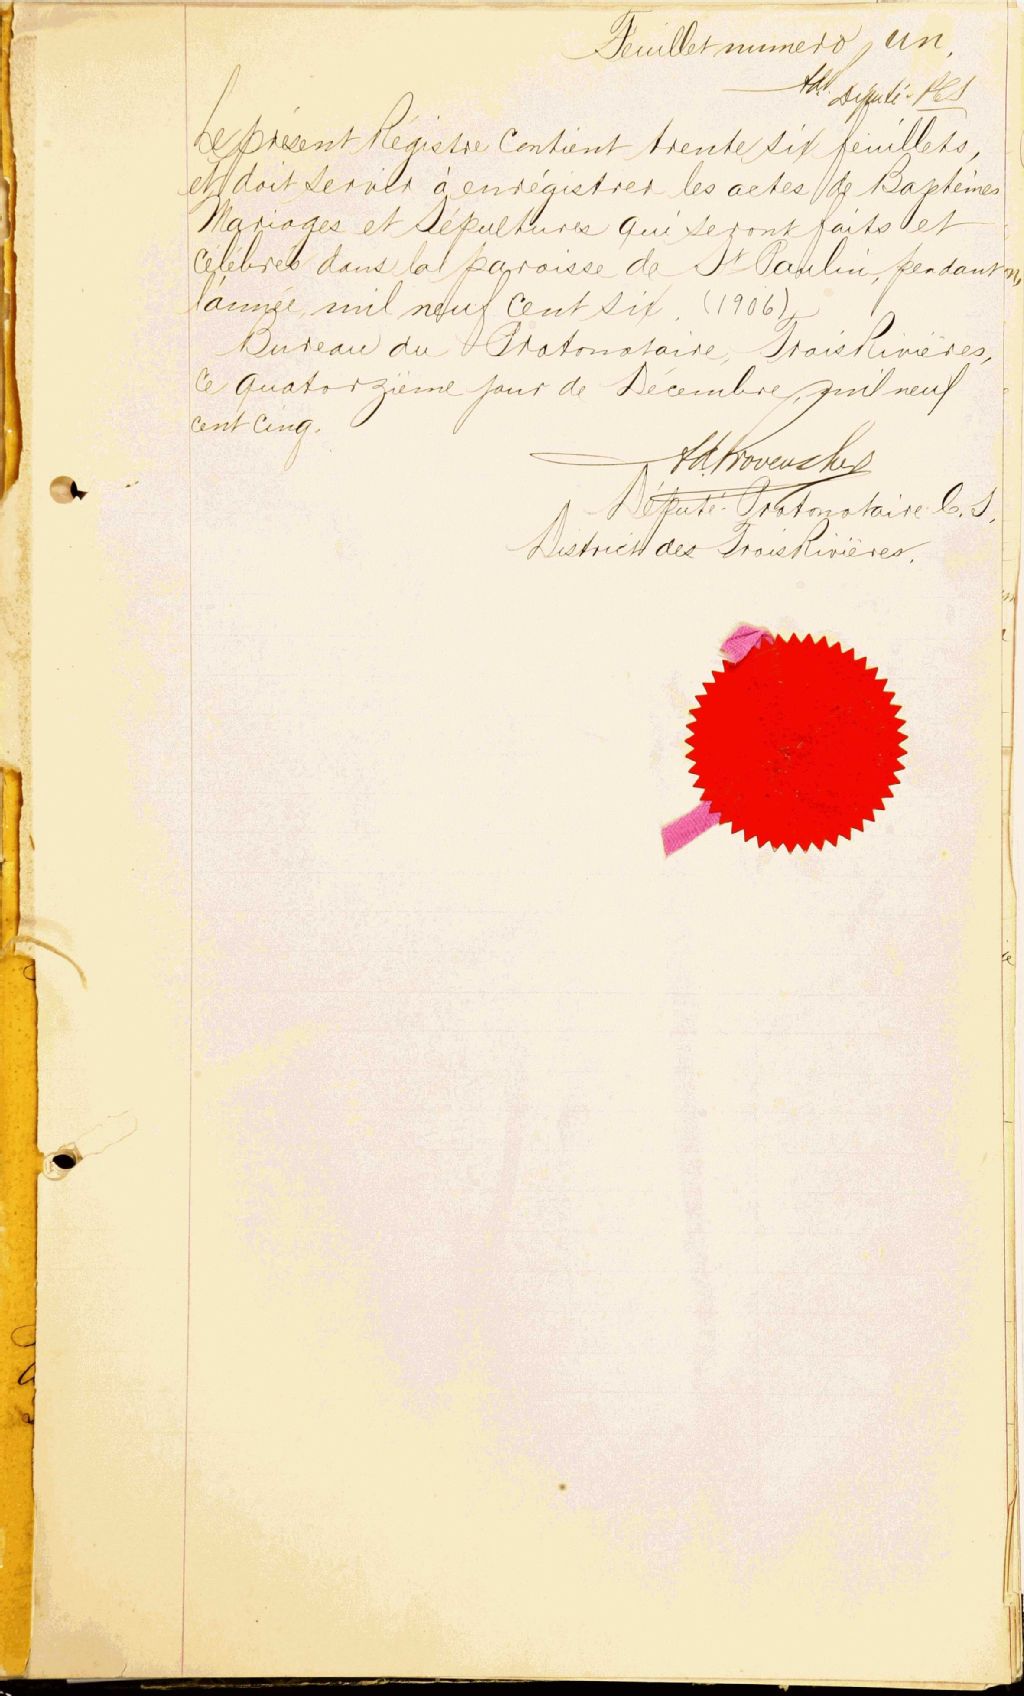 Feuillet numero un.
Député P.C.S
Le présent Régistre contient trente six feuillets,
et doit servir à enrégistrer les actes de Baptêmes
Mariages et Sépultures qui seront faits et
célébrés dans la paroisse de St Paulin, pendant
l'année mil neuf cent six. (1906)
Bureau du Protonotaire, Trois Rivières,
ce quatorzième jour de Décembre, mil neuf
cent cinq.
Député Protonotaire C. S.
District des Trois Rivières.